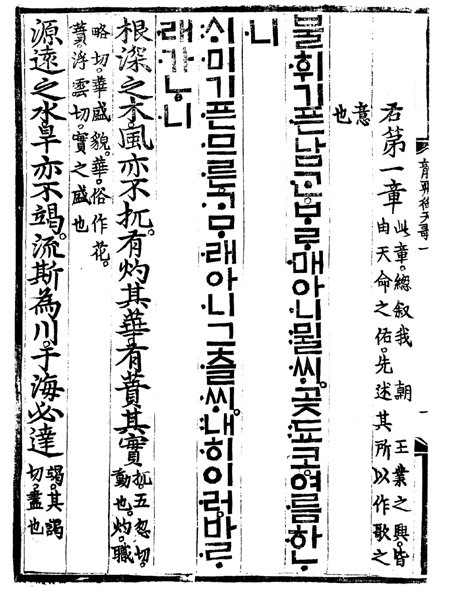 龍飛御天歌一 一
右第一章 此章。總叙我 朝 王業之興。皆
由天命之佑。先述其所以作歌之
意
也
불휘기픈남ᄀᆞᆫᄇᆞᄅᆞ매아니뮐ᄊᆡ。곶됴코。여름하ᄂᆞ
니
ᄉᆡ미기픈므른ᄀᆞᄆᆞ래아니그츨ᄊᆡ。내히이러。바ᄅᆞ
래가ᄂᆞ니
根深之木。風亦不扤。有灼其華。有蕡其實 扤。五忽切。
動也。灼。職
略切。華盛貌。華。俗作花。
蕡。浮雲切。實之盛也
源遠之水。旱亦不竭。流斯為川。于海必達 竭。其謁
切。盡也